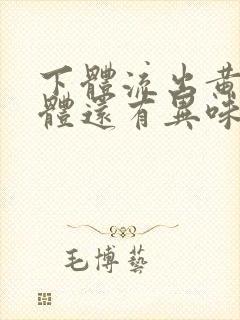 下體流出黄
體還有異味
毛博藝